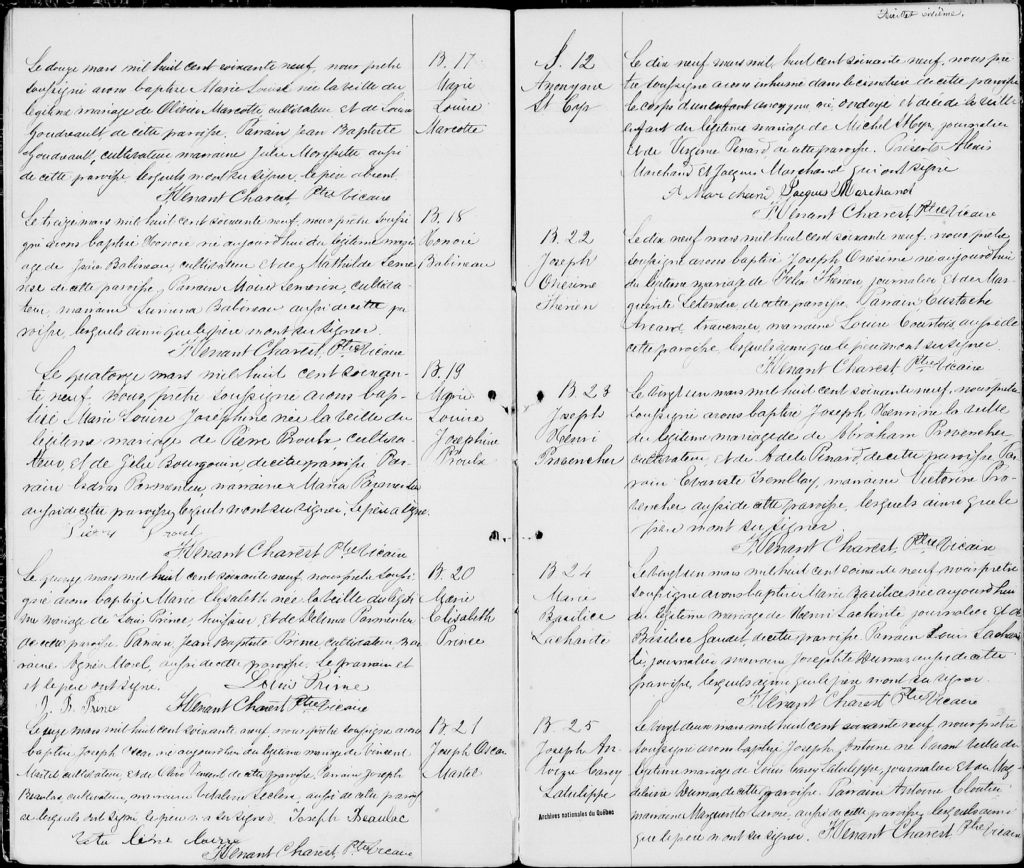 B. 17
Marie
Louise
Marcotte
Le douze mars mil huit cent soixante neuf, nous prêtre
soussigné avons baptisé Marie Louise née la veille du
légitime mariage de Olivier Marcotte cultivateur et de Louise
Goudreault de cette paroisse. Parrain Jean Baptiste
Goudreault, cultivateur marraine Julie Morissette aussi
de cette paroisse lesquels n'ont su signer. le père absent.
H.Énant Charest, Ptre Vicaire
B. 18
Honoré
Babineau
Le treize mars mil huit cent soixante neuf, nous prêtre soussi-
gné avons baptisé Honoré né aujourd'hui du légitime mari-
age de Babineau, cultivateur et de Mathilde
de cette paroisse, Parrain cultiva-
teur, marraine Babineau aussi de cette pa
roisse, lesquels ainsi que le père n'ont su signer.
H. Énant Charest, Ptre Vicaire
B. 19
Marie
Louise
Joséphine
Proulx
Le quatorze mars mil huit cent soixan-
te neuf, nous prêtre soussigné avons bap-
tisé Marie Louise Joséphine née la veille du
légitime mariage de Pierre Proulx cultiva-
teur, et de Julie Bourgouin de cette paroisse Par-
rain Parmenteu, marraine Maria
aussi de cette paroisse, lesquels n'ont su signer, le père a signé.
H. Énant Charest Ptre Vicaire
B. 20
Marie
Elisabeth
Prince
Le quinze mars mil huit cent soixante neuf, nous prêtre soussi-
gné avons baptisé Marie Elisabeth née la veille du légiti-
me mariage de Louis Prince, huissier, et de Delima Parmenteu
de cette paroisse. Parrain, Jean Baptiste Prince cultivateur mar-
raine Agnès Morel, aussi de cette paroisse. Le parrain et
et le père ont signé. Louis Prince
J. B. Prince H. Énant Charest Ptre Vicaire
B. 21
Joseph Oscar
Martel
Le seize mars mil huit cent soixante neuf, nous prêtre soussigné avons
baptisé Joseph Oscar né aujourd'hui du légitime mariage de Vincent
Martel cultivateur, et de Vincent de cette paroisse, Parrain Joseph
Beaulac, cultivateur, marraine Leclerc, aussi de cette parois-
se lesquels ont signé le père n'a su signer. Joseph Beaulac
H. Énant Charest, Ptre Vicaire
Feuillet sixième.
S. 12
Anonyme
St Cyr
Le dix neuf mars mil huit cent soixante neuf, nous prê-
tre soussigné avons inhumé dans le cimetière de cette paroisse
le corps d'un enfant anonyme ondoyé et décédé la veille
enfant du légitime mariage de Michel St Cyr, journalier
et de Virginie Pinard de cette paroisse. Présents Alexis
Marchand et Jacques Marchand qui ont signé
A Marchand Jacques Marchand
H. Énant Charest, Ptre Vicaire
B. 22
Joseph
Onésime
Therien
Le dix neuf mars mil huit cent soixante neuf, nous prêtre
soussigné avons baptisé Joseph Onésime né aujourd'hui
du légitime mariage de Félix Therien, journalier et de Mar-
guerite Letendre, de cette paroisse, Parrain Eustache
traversier, marraine Louise Courtois, aussi de
cette paroisse, lesquels ainsi que le père n'ont su signer.
H. Énant Charest Ptre Vicaire
B. 23
Joseph
Henri
Provencher
Le vingt un mars mil huit cent soixante neuf, nous prêtre
soussigné avons baptisé Joseph Henri né la veille
du légitime mariage de Abraham Provencher
cultivateur, et de Adèle Pinard de cette paroisse Par-
rain Evariste Tremblay, marraine Victorine Pro-
vencher aussi de cette paroisse, lesquels ainsi que le
père n'ont su signer
H. Énant Charest, Ptre Vicaire
B. 24
Marie
Basilice
Lacharité
Le vingt un mars mil huit cent soixante neuf, nous prêtre
soussigné avons baptisé Marie Basilice née aujourd'hui
du légitime mariage de Henri Lacharité journalier et de
Basilice Gaudet de cette paroisse Parrain Louis Lachari-
té, journalier marraine Josephte Dumas aussi de cette
paroisse, lesquels ainsi que le père n'ont su signer
H. Énant Charest Ptre Vicaire
B. 25
Joseph An-
toine Carey
Latulippe
Le vingt deux mars mil huit cent soixante neuf, nous prêtre
soussigné avons baptisé Joseph Antoine né l'avant veille du
légitime mariage de Louis Carey Latulippe, journalier et de Mag-
deleine Dumas de cette paroisse. Parrain Antoine Cloutier
marraine Marguerite aussi de cette paroisse, lesquels ainsi
que le père n'ont su signer. H. Énant Charest Ptre Vicaire
Archives nationales du Québec